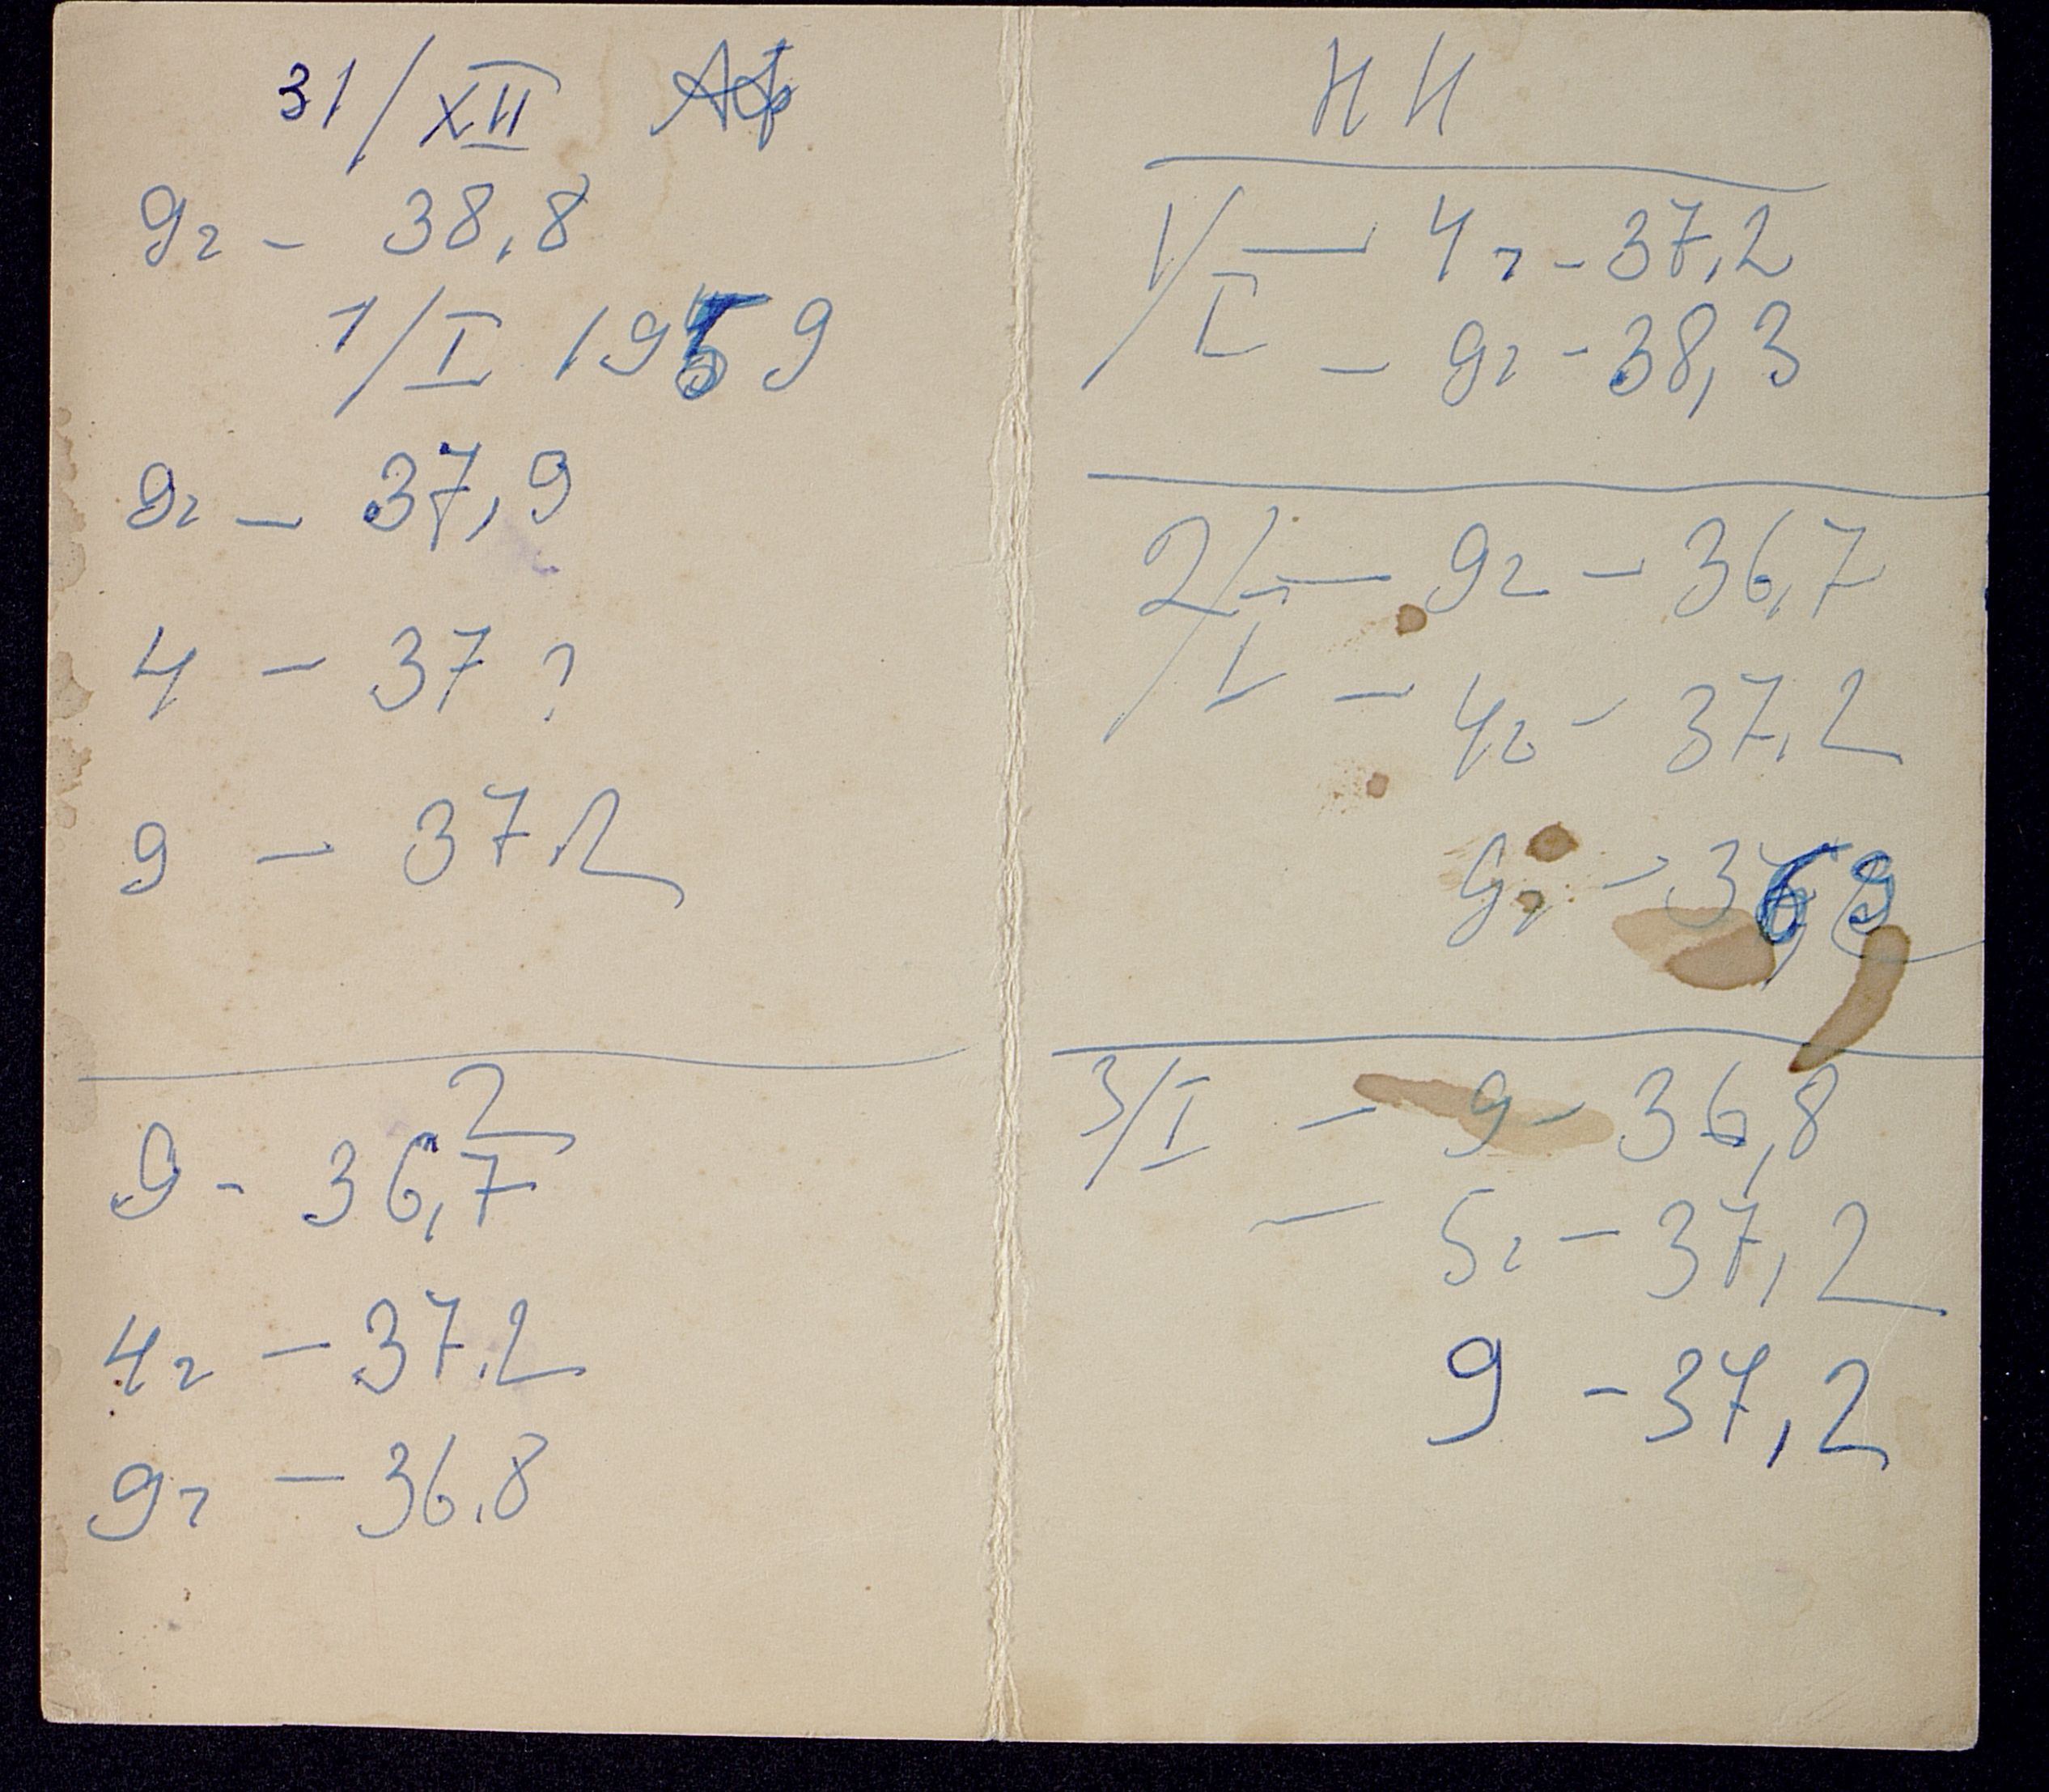 31/XII
9г - 38,8
1/I 1959
9г - 37,9
4 - 37 ?
9 - 37.2
2
9 - 36,7
4г - 37.2
9г - 36.8
НН
1/I — 4г - 37,2
- 9г - 38,3
2/I — 9г - 36,7
- 4г - 37,2
9г - 36 9
3/I - 9 - 36,8
- 5г - 37,2
9 - 37,2